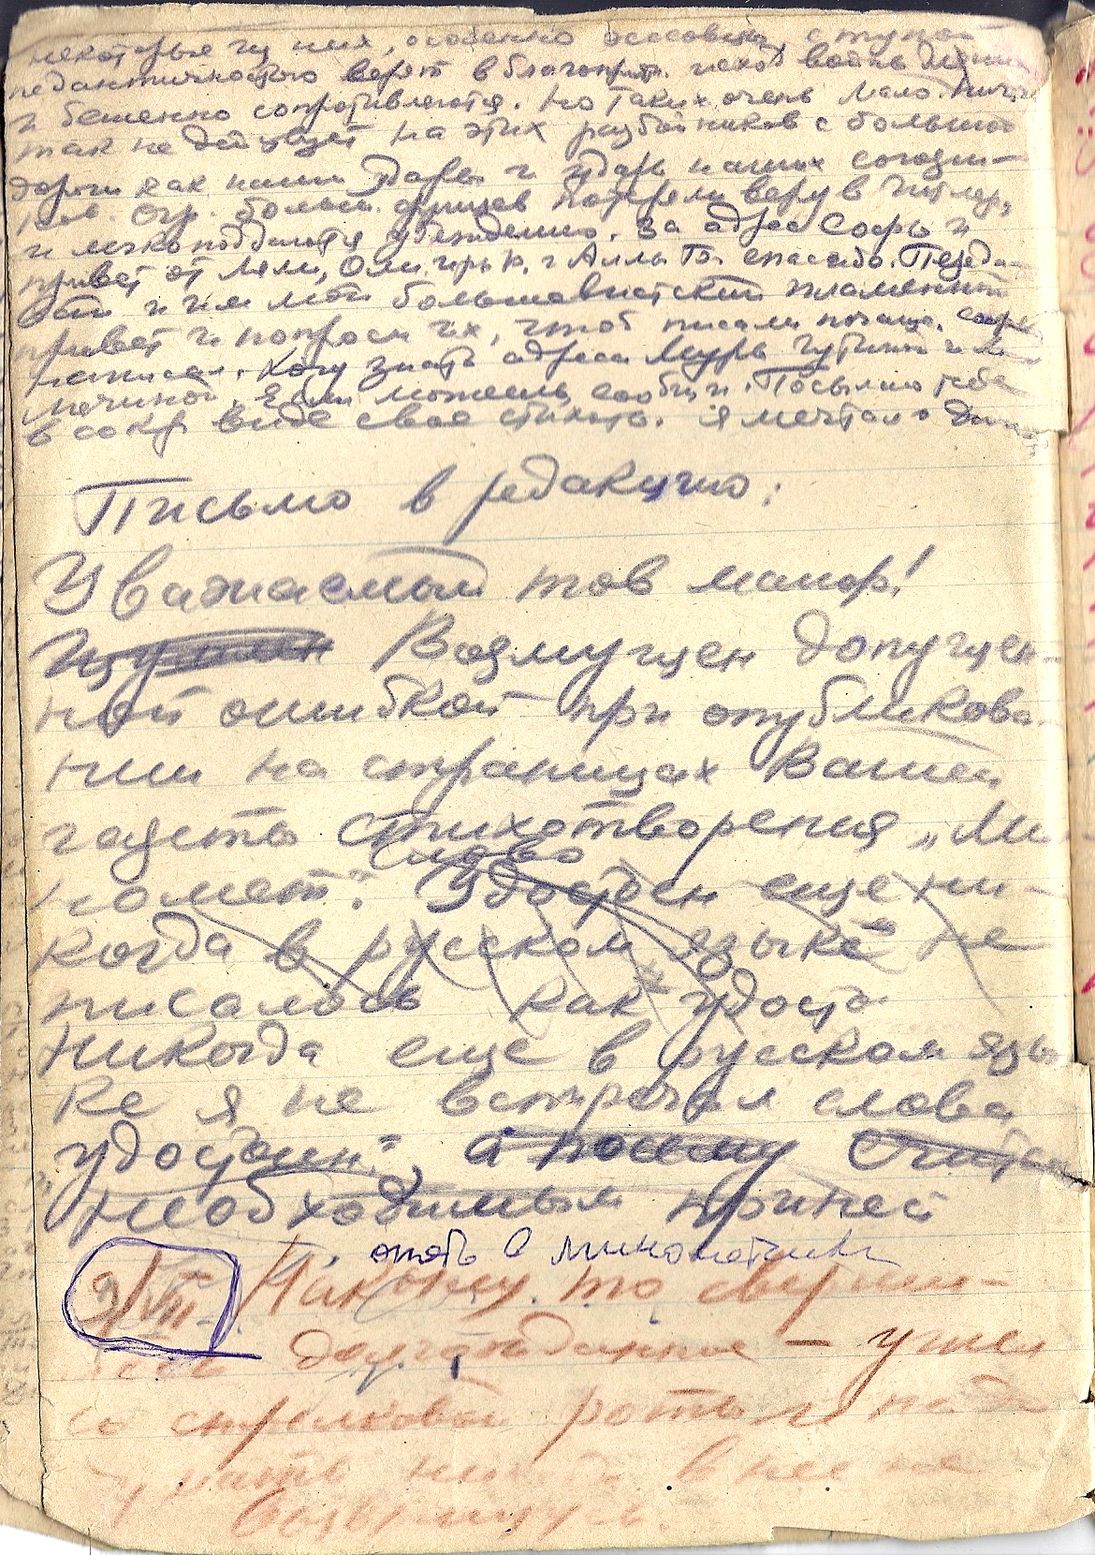 некоторые из них, особенно эсесовцы, с тупой
педантичностью верят в благоприят. исход войны для них
и бешенно сопротивляются. Но таких очень мало. Ничто
так не действует на этих разбойников с большой
дороги как наши удары и удары наших союзни-
ков. Огр. больш. фрицев потеряли веру в Гитлер.
и легко поддаются убеждению. За адрес Соры и
привет от Ляли, Оли, Иры К. и Аллы Гр. спасибо. Переда-
вай и им мой большевистский пламенный
привет и попроси их, чтоб писали почаще. Соре
написал. Хочу знать адреса Муры
Если можешь, сообщи. Посылаю тебе
в сокр. виде свое стихотв. Я мечтал о
Письмо в редакцию:
Уважаемый тов майор!
Возмущен допущен-
ной ошибкой при опубликова-
нии на страницах Вашей
газеты стихотворения „Ми-
слово
номет". Удостоен еще ни-
когда в русском языке не
писалось как удост
Никогда еще в русском язы-
ке я не встречал слова
„удостоин", а поэму считаю
необходимым принести
опять в минометчики
9/VII Наконец-то сверши-
лось долгожданное – ушел
со стрелковой роты и надо
думать никогда в нее не
возвращусь.